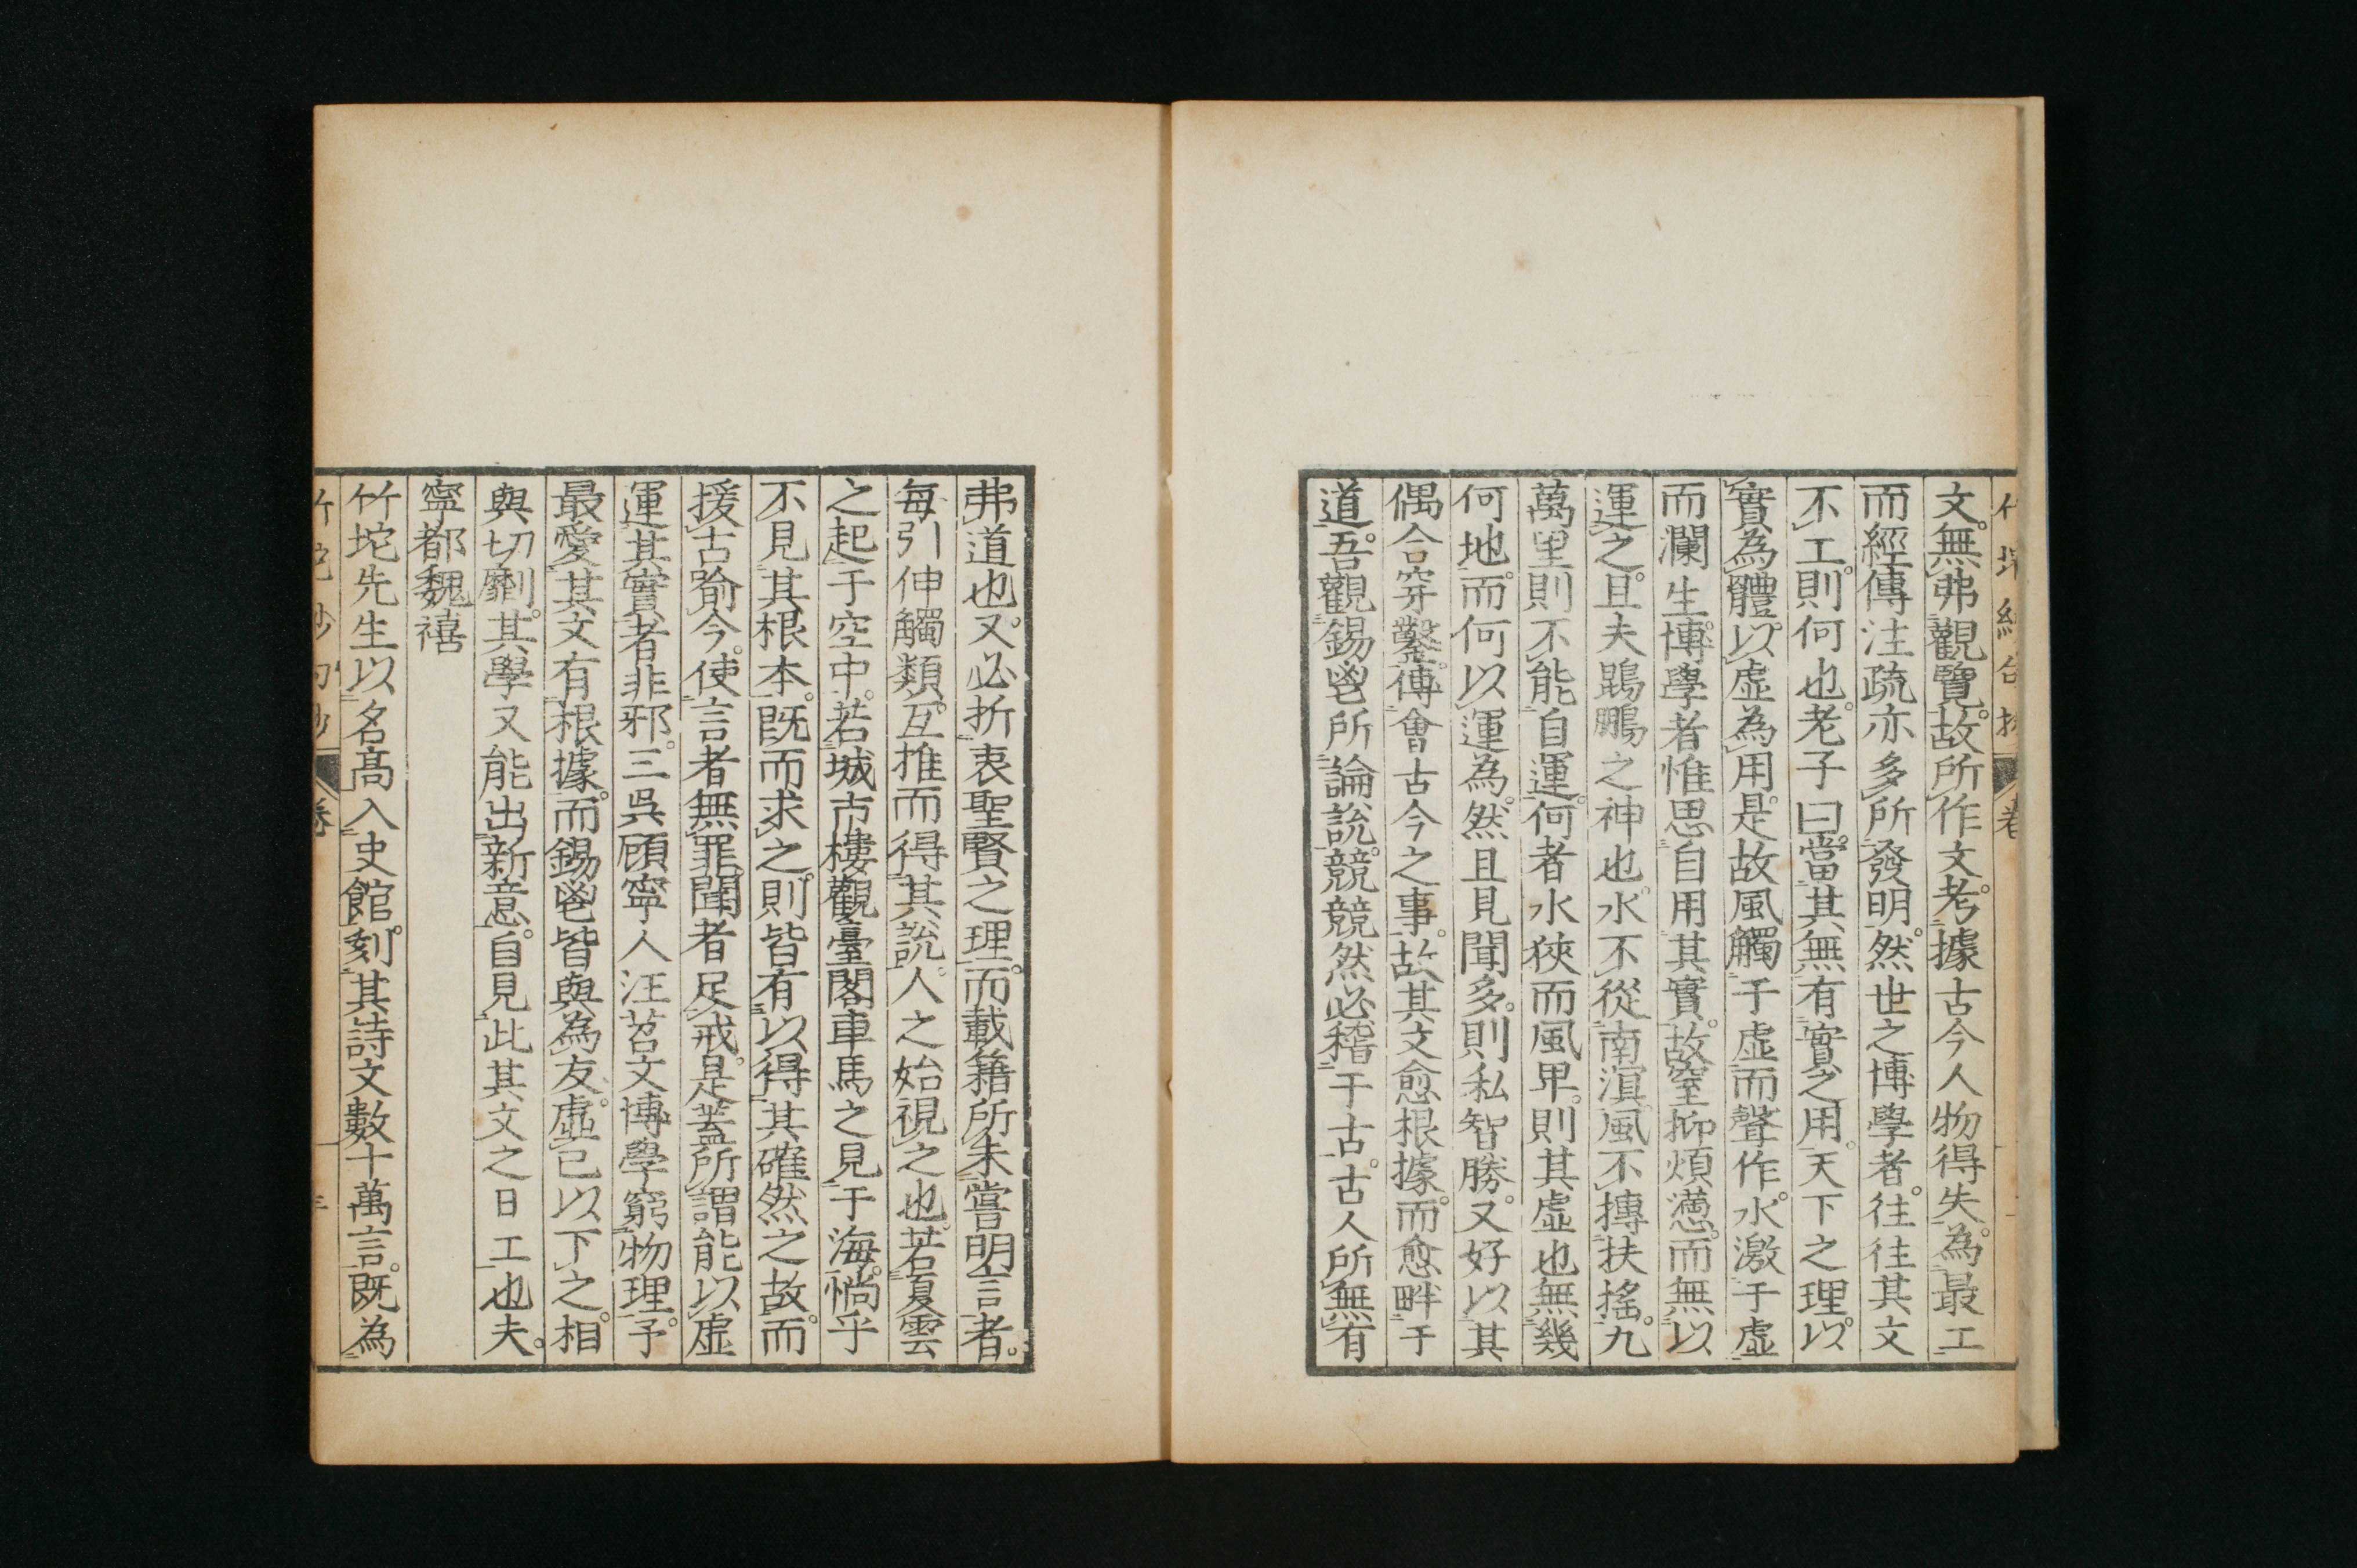 文。無弗觀覽。故所作文。考據古今人物得失。為最工
而經傳注疏亦多所發明。然世之博學者。往往其文
不工。則何也。老子曰。當其無有實之用。天下之理。以
實為體。以虛為用。是故風觸于虛而聲作。水激于虛
而瀾生。博學者惟思自用其實。故窒抑煩懣。而無以
運之。且夫鵾鵬之神也。水不從南溟。風不摶扶搖。九
萬里則不能自運。何者水狹而風卑。則其虛也無幾
何地。而何以運為。然且見聞多。則私智勝。又好以其
偶合穿鑿。傅會古今之事。故其文愈根據。而愈畔于
道。吾觀錫鬯所論說。競競然必稽于古。古人所無有
弗道也。又必折衷聖賢之理。而載籍所未嘗明言者。
每引伸觸類。互推而得其說。人之始視之也。若夏雲
之起于空中。若城市樓觀臺閣車馬之見于海。惝乎
不見其根本。既而求之。則皆有以得其確然之故。而
援古喻今。使言者無罪。聞者足戒。是葢所謂能以虛
運其實者非邪。三吳顧寧人汪苕文博學窮物理。予
最愛其文有根據。而錫鬯皆與為友。虛己以下之。相
與切劘。其學又能出新意。自見此其文之日工也夫。
寧都魏禧
竹垞先生以名高入史館。刻其詩文數十萬言。既為